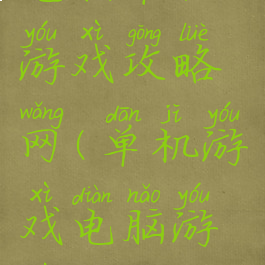 yóu xì gōng lüè
游戏攻略
wǎng dān jī yóu
网(单机游
xì diàn nǎo yóu
戏电脑游